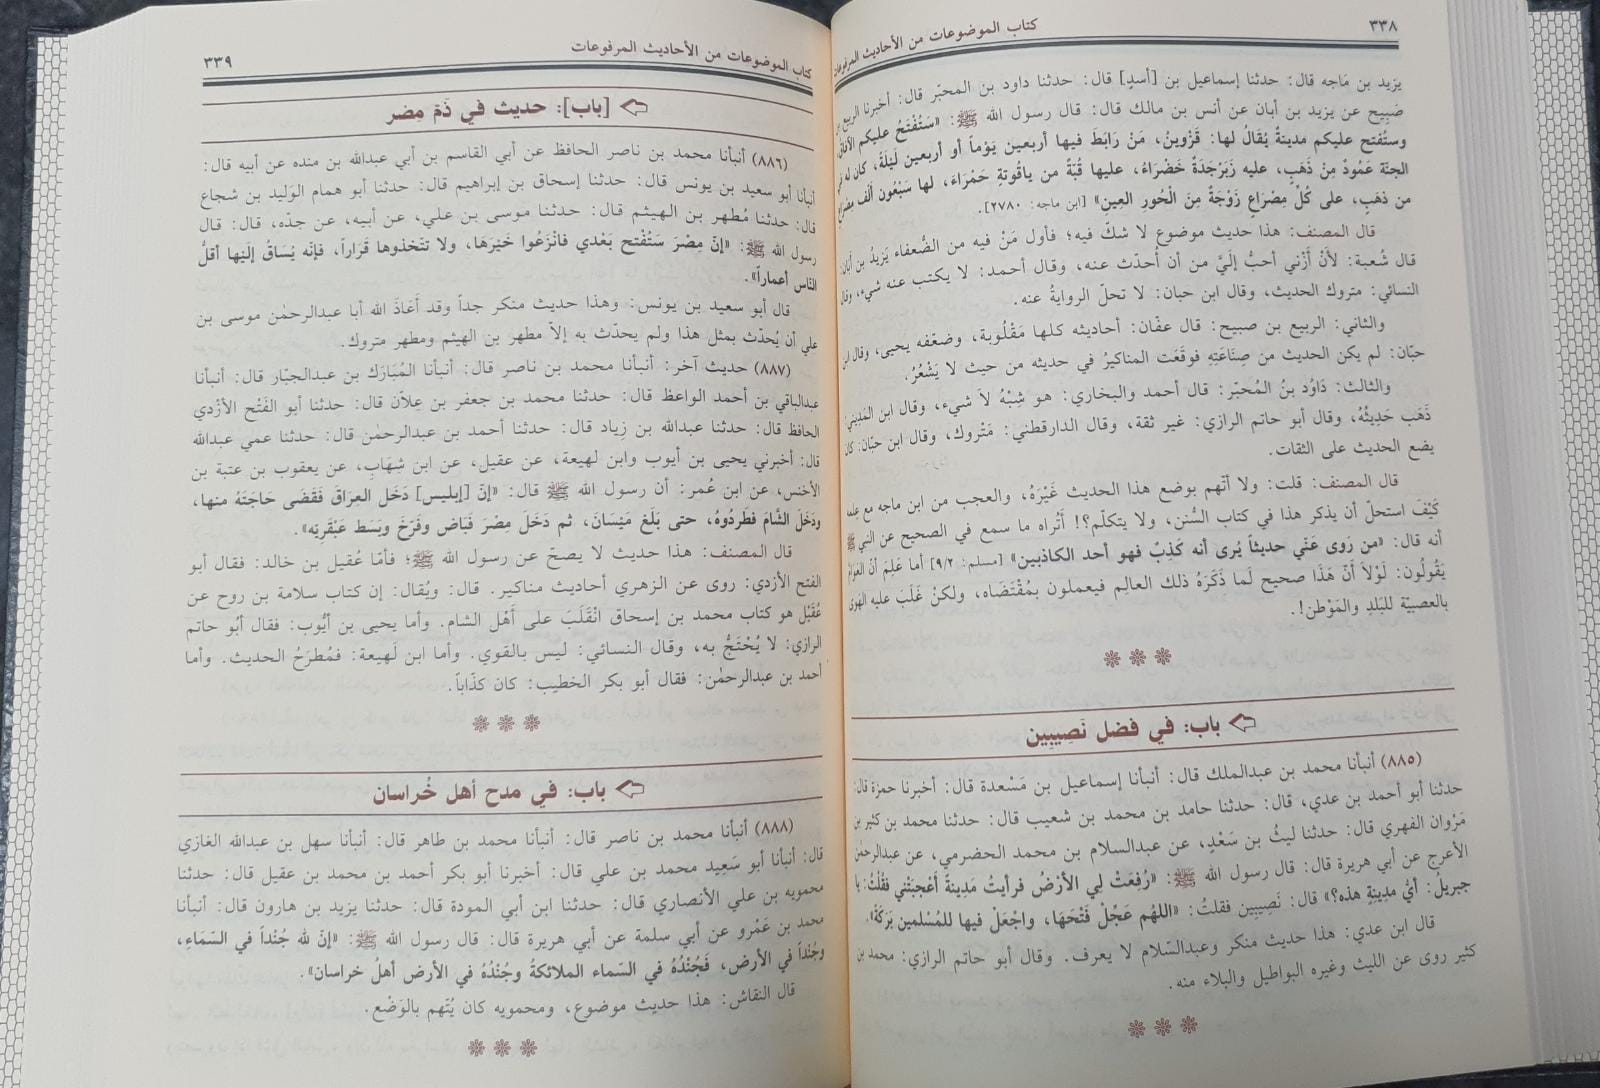 كتاب الموضوعات من الأحاديث المرفوعات ٣٣٨
يزيد بن مَاجه قال: حدثنا إسماعيل بن [أسدٍ] قال: حدثنا داود بن المحبّر قال: أخبرنا الربيع بن
صَبِيح عن يزيد بن أبان عن أنس بن مالك قال: قال رسول الله ﷺ: «سَتُفْتَحُ عليكم الآفاق
وستُفتح عليكم مدينةٌ يُقَالُ لها: قَزْوينُ، مَنْ رَابَطَ فيها أربعين يَوْماً أو أربعين لَيْلَةً، كان له في
الجنّة عَمُودٌ مِنْ ذَهَبٍ، عليه زَبَرْجَدَةٌ خَضْرَاءُ، عليها قُبّةٌ من ياقُوتةٍ حَمْرَاءَ، لها سَبْعُون ألف مِصْرَاعٍ
من ذهَبٍ، على كُلِّ مِصْرَاعٍ زَوْجَةٌ مِنَ الْحُورِ العِينِ» [ابن ماجه: ٢٧٨٠].
قال المصنف: هذا حديث موضوع لا شكّ فيه؛ فأول مَنْ فيه من الضُّعفاء يَزيدُ بن أبَان:
قال شُعبة: لأنْ أزْني أحبُّ إلَيَّ من أن أُحدّث عنه، وقال أحمد: لا يكتب عنه شيء، وقال
النسائي: متروك الحديث، وقال ابن حبان: لا تحلّ الروايةُ عنه.
والثاني: الربيع بن صبيح: قال عفّان: أحاديثه كلها مَقْلُوبة، وضعّفه يحيى، وقال ابن
حبّان: لم يكن الحديث من صِنَاعَتِهِ فوقَعَت المناكيرُ في حديثه من حيث لا يَشْعُرُ.
والثالث: دَاوُد بنُ المُحبّر: قال أحمد والبخاري: هو شِبْهُ لاَ شيء، وقال ابن المَدِيني:
ذَهَب حَدِيثُهُ، وقال أبو حاتم الرازي: غير ثقة، وقال الدارقطني: مَتْروك، وقال ابن حبّان: كان
يضع الحديث على الثقات.
قال المصنف: قلت: ولا أتّهم بوضع هذا الحديث غَيْرَهُ، والعجب من ابن ماجه مع عِلمه
كَيْفَ استحلّ أن يذكر هذا في كتاب السُّنن، ولا يتكلّم؟! أتُراه ما سمع في الصحيح عن النبي ﷺ
أنه قال: «من رَوى عَنّي حديثاً يُرى أنه كَذِبٌ فهو أحد الكاذبين» [مسلم: ٩/٢] أما عَلِمَ أنّ العَوَامَّ
يَقُولُون: لَوْلاَ أنّ هَذَا صحيح لَما ذَكَرَهُ ذلك العالِم فيعملون بمُقْتَضَاه، ولكنْ غَلَبَ عليه الهَوَى
بالعصبيّة للبَلدِ والمَوْطن!.
باب: في فضل نَصِيبِين
(٨٨٥) أنبأنا محمد بن عبدالملك قال: أنبأنا إسماعيل بن مَسْعدة قال: أخبرنا حمزة قال:
حدثنا أبو أحمد بن عدي، قال: حدثنا حامد بن محمد بن شعيب قال: حدثنا محمد بن كثير بن
مَرْوان الفهري قال: حدثنا ليثُ بن سَعْدٍ، عن عبدالسلام بن محمد الحضرمي، عن عبدالرحمٰن
الأعرج عن أبي هريرة قال: قال رسول الله ﷺ: «رُفعَتْ لِي الأرْضُ فرأيتُ مَدِينةً أعْجبَتْني فقُلْتُ: يا
جبريلُ: أيُّ مدِينةٍ هذه؟» قال: نَصِيبِين فقلتُ: «اللهُم عَجِّلْ فَتْحَهَا، واجْعَلْ فيها للمُسْلمين بَرَكَةً».
قال ابن عدي: هذا حديث منكر وعبدالسّلام لا يعرف. وقال أبو حاتم الرازي: محمد بن
كثير روى عن الليث وغيره البواطيل والبلاء منه.
كتاب الموضوعات من الأحاديث المرفوعات ٣٣٩
[باب]: حديث في ذَمّ مِضر
(٨٨٦) أنبأنا محمد بن ناصر الحافظ عن أبي القاسم بن أبي عبدالله بن منده عن أبيه قال:
أنبأنا أبو سعيد بن يونس قال: حدثنا إسحاق بن إبراهيم قال: حدثنا أبو همام الوَليد بن شجاع
قال: حدثنا مُطهر بن الهيثم قال: حدثنا موسى بن علي، عن أبيه، عن جدّه، قال: قال
رسول الله ﷺ: «إنّ مِصْرَ سَتُفْتح بَعْدي فانْزعُوا خَيْرَهَا، ولا تتّخذوها قَرَاراً، فإنّه يُسَاقُ إلَيْها أقلُّ
النّاس أعماراً».
قال أبو سعيد بن يونس: وهذا حديث منكر جداً وقد أعَاذَ الله أبا عبدالرحمٰن موسى بن
علي أن يُحدّث بمثل هذا ولم يحدّث به إلاّ مطهر بن الهيثم ومطهر متروك.
(٨٨٧) حديث آخر: أنبأنا محمد بن ناصر قال: أنبأنا المُبَارَك بن عبدالجبّار قال: أنبأنا
عبدالباقي بن أحمد الواعظ قال: حدثنا محمد بن جعفر بن عِلاّن قال: حدثنا أبو الفَتْح الأزْدي
الحافظ قال: حدثنا عبدالله بن زِياد قال: حدثنا أحمد بن عبدالرحمٰن قال: حدثنا عمي عبدالله
قال: أخبرني يحيى بن أيوب وابن لهيعة، عن عقيل، عن ابن شِهَابِ، عن يعقوب بن عتبة بن
الأخنس، عن ابن عُمر: أن رسول الله ﷺ قال: «إنّ [إبليس] دَخَل العِرَاقَ فَقَضَى حَاجَتَهُ منها،
ودَخَلَ الشَّامَ فطَردُوهُ، حتى بَلَغَ مَيْسَانَ، ثم دَخَلَ مِصْرَ فَبَاض وفرّخَ وبَسَط عَبْقريّه».
قال المصنف: هذا حديث لا يصحّ عن رسول الله ﷺ؛ فأمّا عُقيل بن خالد: فقال أبو
الفتح الأزدي: روى عن الزهري أحاديث مناكير. قال: ويُقال: إن كتاب سلامة بن روح عن
عُقَيْل هو كتاب محمد بن إسحاق انْقَلَبَ على أَهْل الشام. وأما يحيى بن أيُّوب: فقال أبُو حاتم
الرازي: لا يُحْتَجُّ به، وقال النسائي: ليس بالقوي. وأما ابن لَهيعة: فمُطرَحُ الحديث. وأما
أحمد بن عبدالرحمٰن: فقال أبو بكر الخطيب: كان كذّاباً.
باب: في مدح أهل خُراسان
(٨٨٨) أنبأنا محمد بن ناصر قال: أنبأنا محمد بن طاهر قال: أنبأنا سهل بن عبدالله الغازي
قال: أنبأنا أبو سَعِيد محمد بن علي قال: أخبرنا أبو بكر أحمد بن محمد بن عقيل قال: حدثنا
محمويه بن علي الأنصاري قال: حدثنا ابن أبي المودة قال: حدثنا يزيد بن هارون قال: أنبأنا
محمد بن عَمْرو عن أبي سلمة عن أبي هريرة قال: قال رسول الله ﷺ: «إنّ لله جُنْداً في السّمَاءِ،
وجُنْداً في الأرض، فَجُنْدُهُ في السّماء الملائكةُ وجُنْدُهُ في الأرض أهلُ خراسان».
قال النقاش: هذا حديث موضوع، ومحمويه كان يُتّهم بالوَضْع.